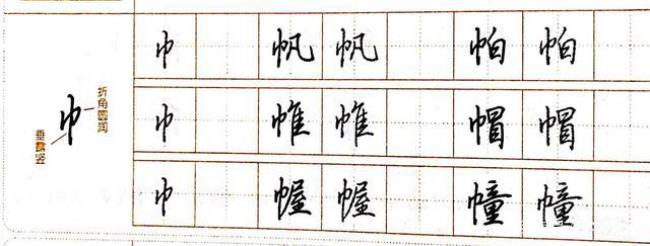 巾 帆 帆 帕 帕
巾 折角圆润 垂露竖
巾 帷 帷 帽 帽
巾 幄 幄 幢 幢